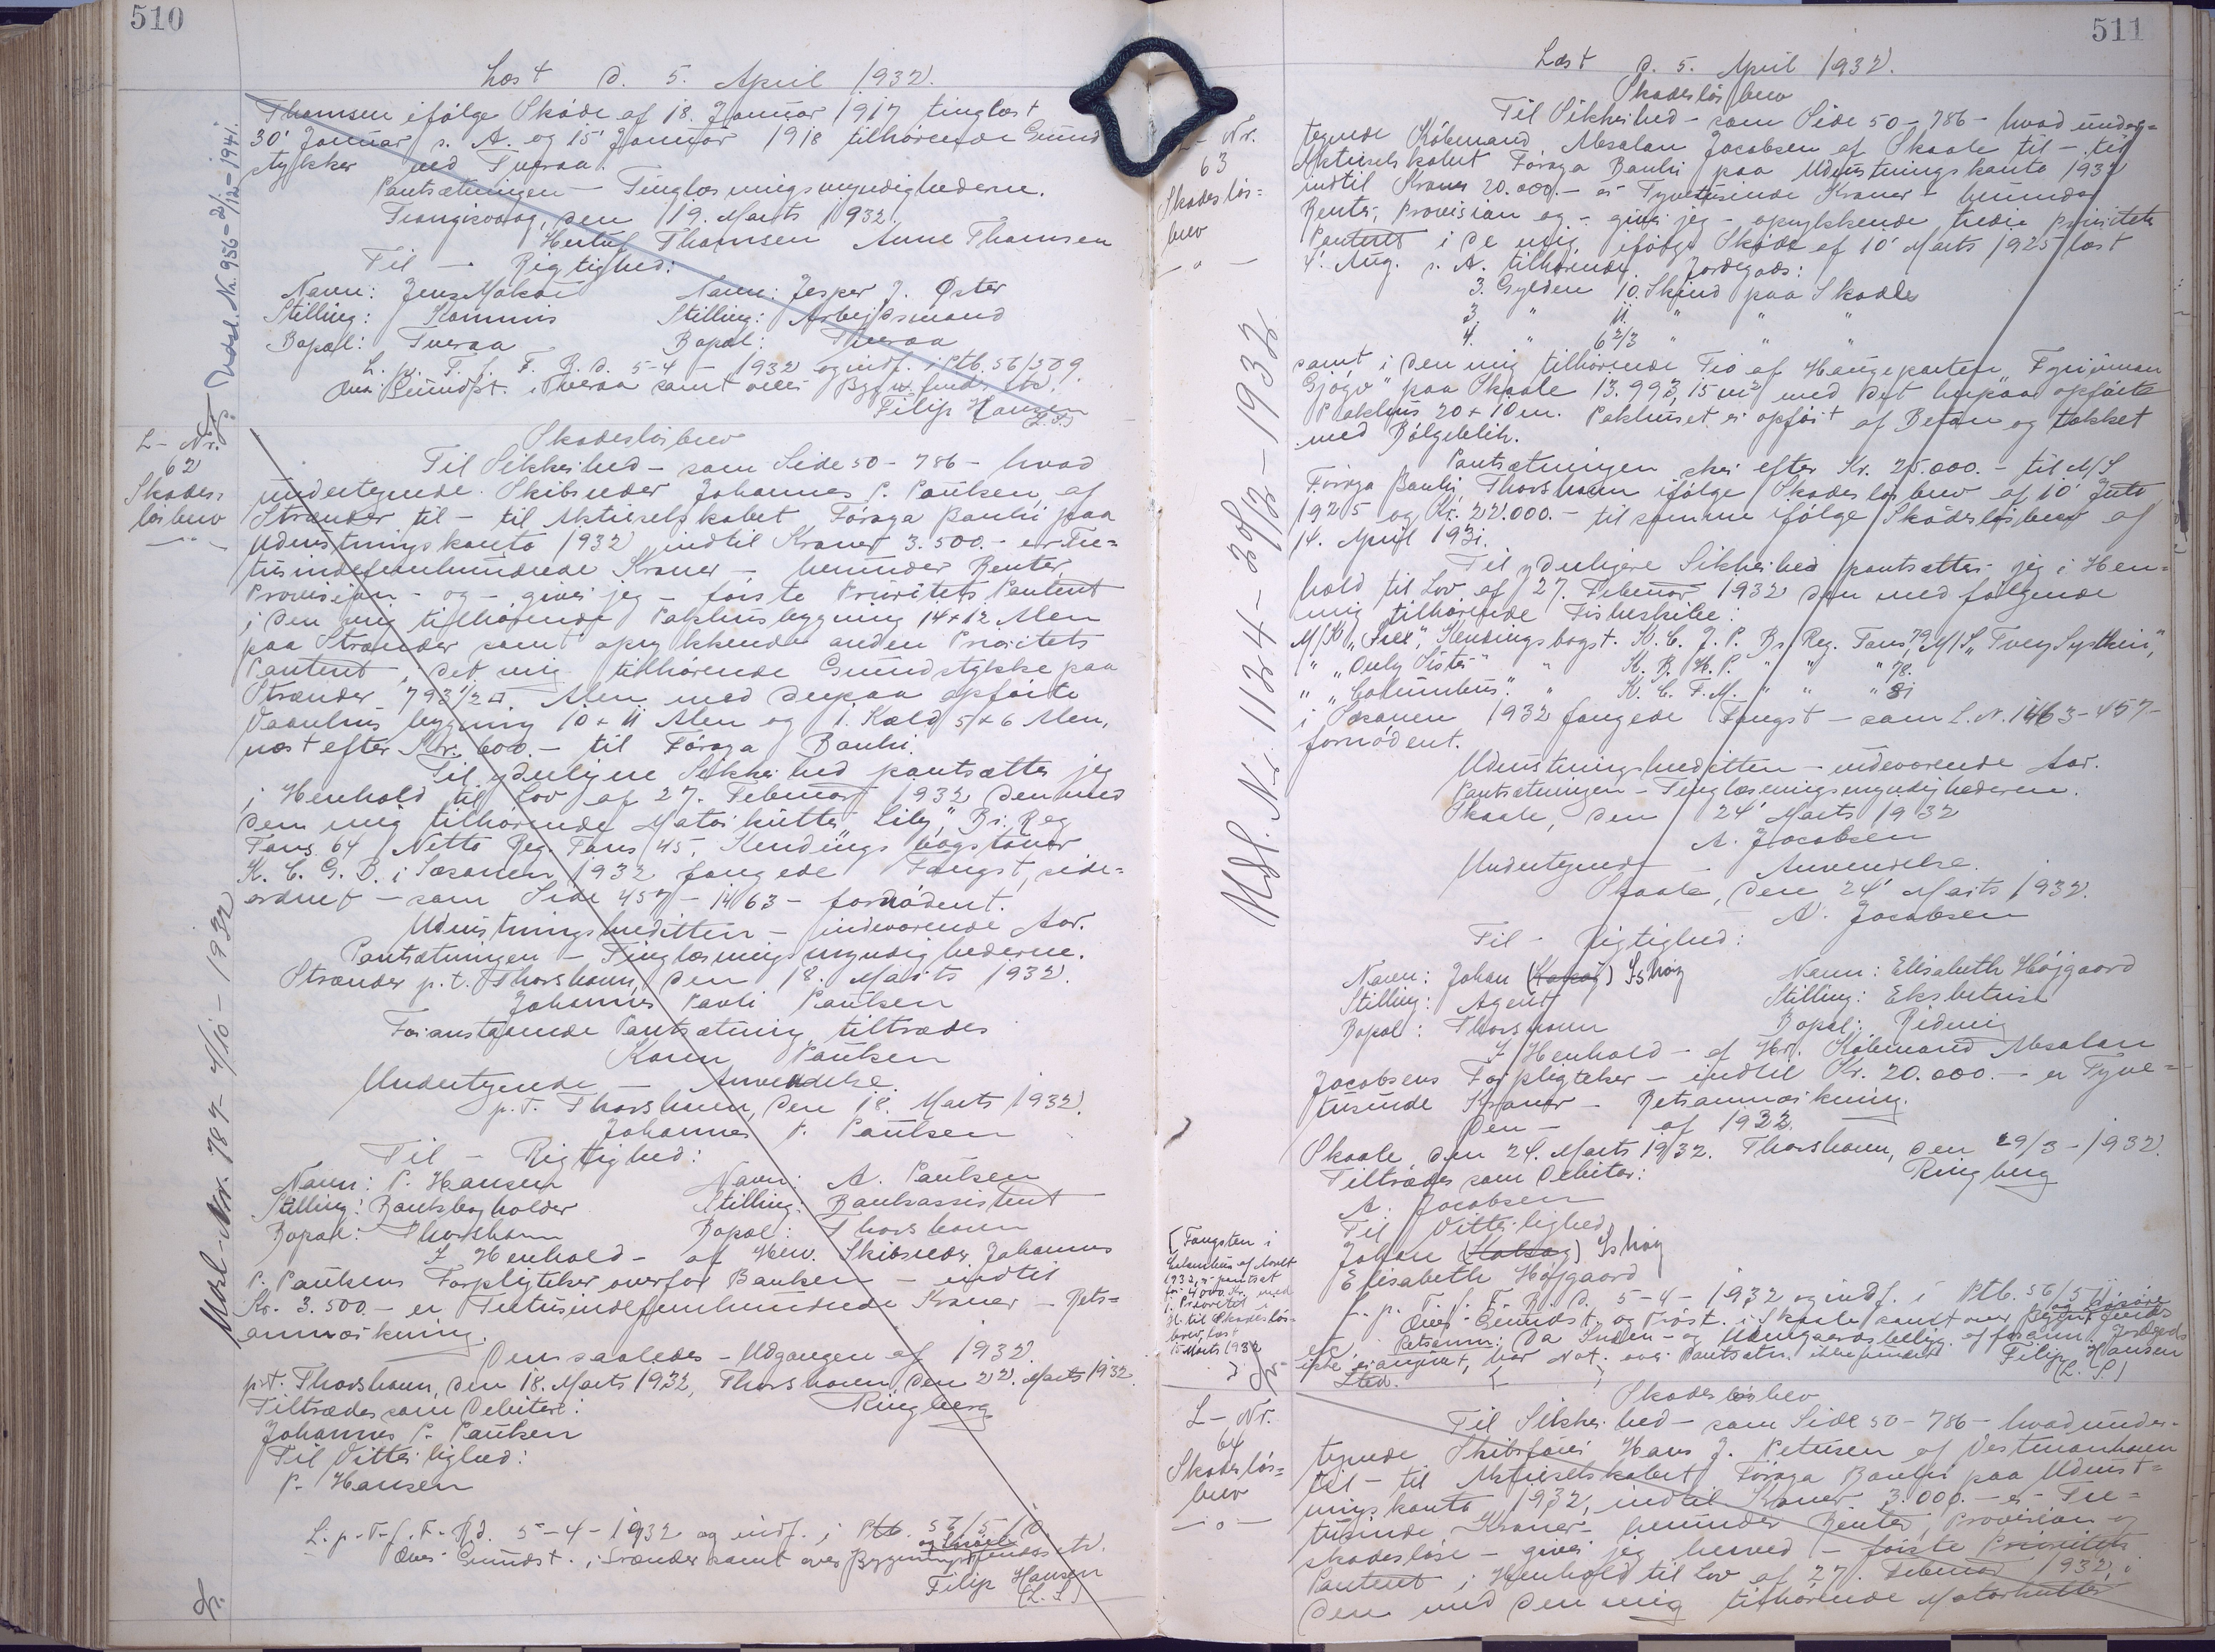 510
Læst d. 5. April 1932.
Thomsen ifølge Skøde af 18. Januar 1917 tinglæst
30' Januar s. A. og 15' Januar 1918 tilhørende Grund
stykker ved Tveraa.
Pantsætningen - Tinglæsningsmyndighederne.
Trangisvaag, den 19. Marts 1932.
Herluf Thomsen Anne Thomsen
Til - Rigtighed:
Navn: Jens Mohr Navn: Jesper J. Øster
Stilling: Kommis Stilling: Arbejdsmand
Bopæl: Tveraa Bopæl: Tveraa
L. p. T. f. F. R. d. 5-4-1932 og indf. i Ptb. 56/509.
Ovs. Grundst. i Tveraa samt over Bygn. findes etc.
Filip Hansen
(L.S.)
Udsl. Nr. 956 - 2/12 - 1941.
L- Nr.
62
Skades-
løsbrev
Skadesløsbrev
Til Sikkerhed - som Side 50-786 - hvad
undertegnede Skibsreder Johannes P. Paulsen af
Strænder til - til Aktieselskabet Føroya Banki paa
Udrustningskonto 1932 indtil Kroner 3.500.- er Tre-
tusindefemhundrede Kroner - herunder Renter
Provision - og - giver jeg - første Prioritets Panteret
i den mig tilhørende Pakhusbygning 14 x 12 Alen
paa Strænder samt oprykkende anden Prioritets
Panteret i det mig tilhørende Grundstykke paa
Strænder 793 1/2 □ Alen med derpaa opførte
Vaanhus bygning 10 x 11 Alen og 1. Kæld 5 x 6 Alen,
næst efter Kr. 600.- til Føroya Banki.
Til yderligere Sikkerhed pantsætter jeg
i Henhold til Lov af 27. Februar 1932 den med
den mig tilhørende Motorkutter "Lily," Br. Reg
Tons 64 Netto Reg. Tons 45, Kendingsbogstaver
K. C. G. D. i Sæsonen 1932 fangede Fangst, side-
ordnet - som Side 457 - 1463 - fornødent.
Udrustningskreditten - indeværende Aar.
Pantsætningen - Tinglæsningsmyndighederne.
Strænder p.t. Thorshavn, den 18. Marts 1932.
Johannes Pauli Paulsen
Foranstaaende Pantsætning tiltrædes
Karen Paulsen
Undertegnede - Anvendelse.
p.t. Thorshavn, den 18. Marts 1932.
Johannes P. Paulsen
Til - Rigtighed:
Navn: P. Hansen Navn: A. Paulsen
Stilling: Bankbogholder Stilling: Bankassistent
Bopæl: Thorshavn Bopæl: Thorshavn
I Henhold - af Hrr. Skibsreder Johannes
P. Paulsens Forpligtelser overfor Banken - indtil
Kr. 3.500 - er Tretusindefemhundrede Kroner - Rets-
anmærkning.
Den saaledes - Udgangen af 1932.
p.t. Thorshavn, den 18. Marts 1932, Thorshavn, den 22. Marts 1932.
Tiltrædes som Debitor: Ringberg
Johannes P. Paulsen
Til Vitterlighed:
P. Hansen
L. p. T. f. F. R. d. 5-4-1932 og indf. i Ptb. 56/510
Ovs. Grundst. i Strænder samt over Bygning findes etc.
Filip Hansen
(L.S.)
Udsl. Nr. 787 - 4/10 - 1932
511
Læst d. 5. April 1932.
L- Nr.
63
Skadesløs-
brev
Skadesløsbrev
Til Sikkerhed - som Side 50-786 - hvad under-
tegnede Købmand Absalon Jacobsen af Skaale til - til
Aktieselskabet Føroya Banki paa Udrustningskonto 1932
indtil Kroner 20.000.- er Tyvetusinde Kroner - herunder
Renter, Provision og - giver jeg - oprykkende tredie Prioritets
Panteret i de mig ifølge Skøde af 10' Marts 1925 læst
4'. Aug. s. A. tilhørende Jordegods:
3. Gylden 10. Skind paa Skaale
3. " 11. " " "
4. " 6 2/3 " " "
samt i den mig tilhørende Tio af Haugeparten "Fyrijúman
Gjógv" paa Skaale 13.993,15 m² med det herpaa opførte
Pakhus 20 x 10 m. Pakhuset er opført af Beton og takket
med Bølgeblik.
Pantsætningen sker efter Kr. 25.000.- til A/S
Føroya Banki, Thorshavn ifølge Skadesløsbrev af 10' Juto
1925 og Kr. 22.000.- til samme ifølge Skadesløsbrev af
14. April 1931.
Til yderligere Sikkerhed pantsætter jeg i Hen-
hold til Lov af 27. Februar 1932 den med følgende
mig tilhørende Fiskeskibe:
M/K "Sill", Kendingsbogst. K. C. J. P. Br. Reg. Tons 79, M/S "Tvey Systkin",
" "Only Sister" " K. B. H. P. " " " 78.
" "Columbus" " K. C. F. M. " " " 81
i Sæsonen 1932 fangede Fangst - som L. N. 1463-457-
fornødent.
Udrustningskreditten - indeværende Aar.
Pantsætningen - Tinglæsningsmyndighederne.
Skaale, den 24' Marts 1932
A. Jacobsen
Undertegnede - Anvendelse.
Skaale, den 24' Marts 1932.
A. Jacobsen
Til - Rigtighed:
Navn: Johan Navn: Elisabeth Højgaard
Stilling: Agent Stilling: Ekspetrise
Bopæl: Thorshavn Bopæl: Ridevig
I Henhold - af Hrr. Købmand Absalon
Jacobsens Forpligtelser - indtil Kr. 20.000.- er Tyve-
tusinde Kroner - Retsanmærkning.
Den - af 1932.
Skaale den 24. Marts 1932. Thorshavn, den 29/3-1932.
Tiltrædes som Debitor: Ringberg
A. Jacobsen
Til Vitterlighed
Johan
Elisabeth Højgaard
L. p. T. f. F. R. d. 5-4-1932 og indf. i Ptb. 56/511
Ovs. Grundst. og Trøst. i Skaale samt over Bygn. findes
etc. Retsanm: Da Inden- og Udengaards beligg. af foranm. Jordegods
ikke er angivet, har Not. over Pantsætn. ikke fundet
Sted. Filip Hansen
(L. S.)
[Fangsten i
Columbus af Aaret
1932, er pantsat
for 4000 Kr. med
1. Prioritet i
H. til Skadesløs-
brev, læst
15 Marts 1932
]
Udsl. Nr. 1124 - 30/12 - 1932
L- Nr.
64
Skadesløs-
brev
Skadesløsbrev
Til Sikkerhed - som Side 50-786 - hvad under-
tegnede Skibsfører Hans J. Petersen af Vestmanhavn
til - til Aktieselskabet Føroya Banki paa Udrust-
ningskonto 1932, indtil Kroner 3.000.- er Tre-
tusinde Kroner - herunder Renter, Provision og
skadesløse - giver jeg herved - første Prioritets
Panteret i Henhold til Lov af 27. Februar 1932, i
den med den mig tilhørende Motorkutter